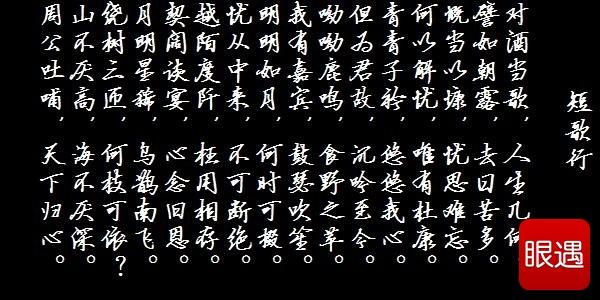 短歌行
对酒当歌，人生几何
譬如朝露，去日苦多。
慨当以慷，忧思难忘。
何以解忧，唯有杜康。
青青子衿，悠悠我心。
但为君故，沉吟至今。
呦呦鹿鸣，食野之苹。
我有嘉宾，鼓瑟吹笙。
明明如月，何时可掇。
忧从中来，不可断绝。
越陌度阡，枉用相存。
契阔谈宴，心念旧恩。
月明星稀，乌鹊南飞。
绕树三匝，何枝可依？
山不厌高，海不厌深。
周公吐哺，天下归心。
眼遇